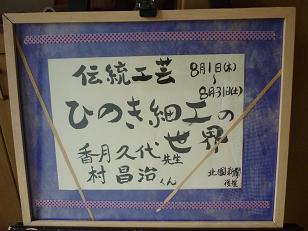 伝統工芸
8月1日(木)
〜
8月31日(土)
ひのき細工の
世界
香月久代先生
村 昌治くん
北國新聞
後援